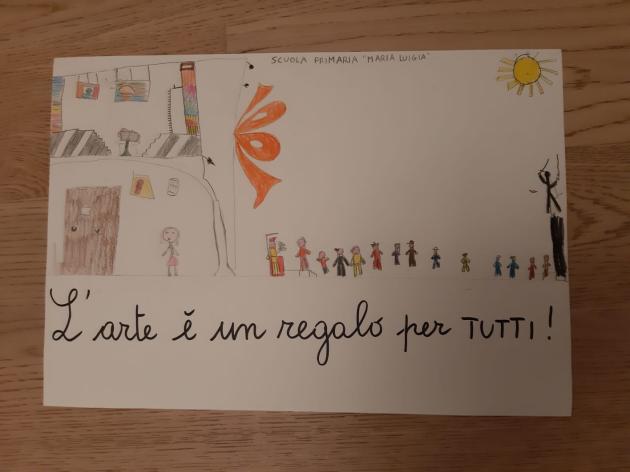 SCUOLA PRIMARIA "MARIA LUIGIA"
L'arte è un regalo per TUTTI!